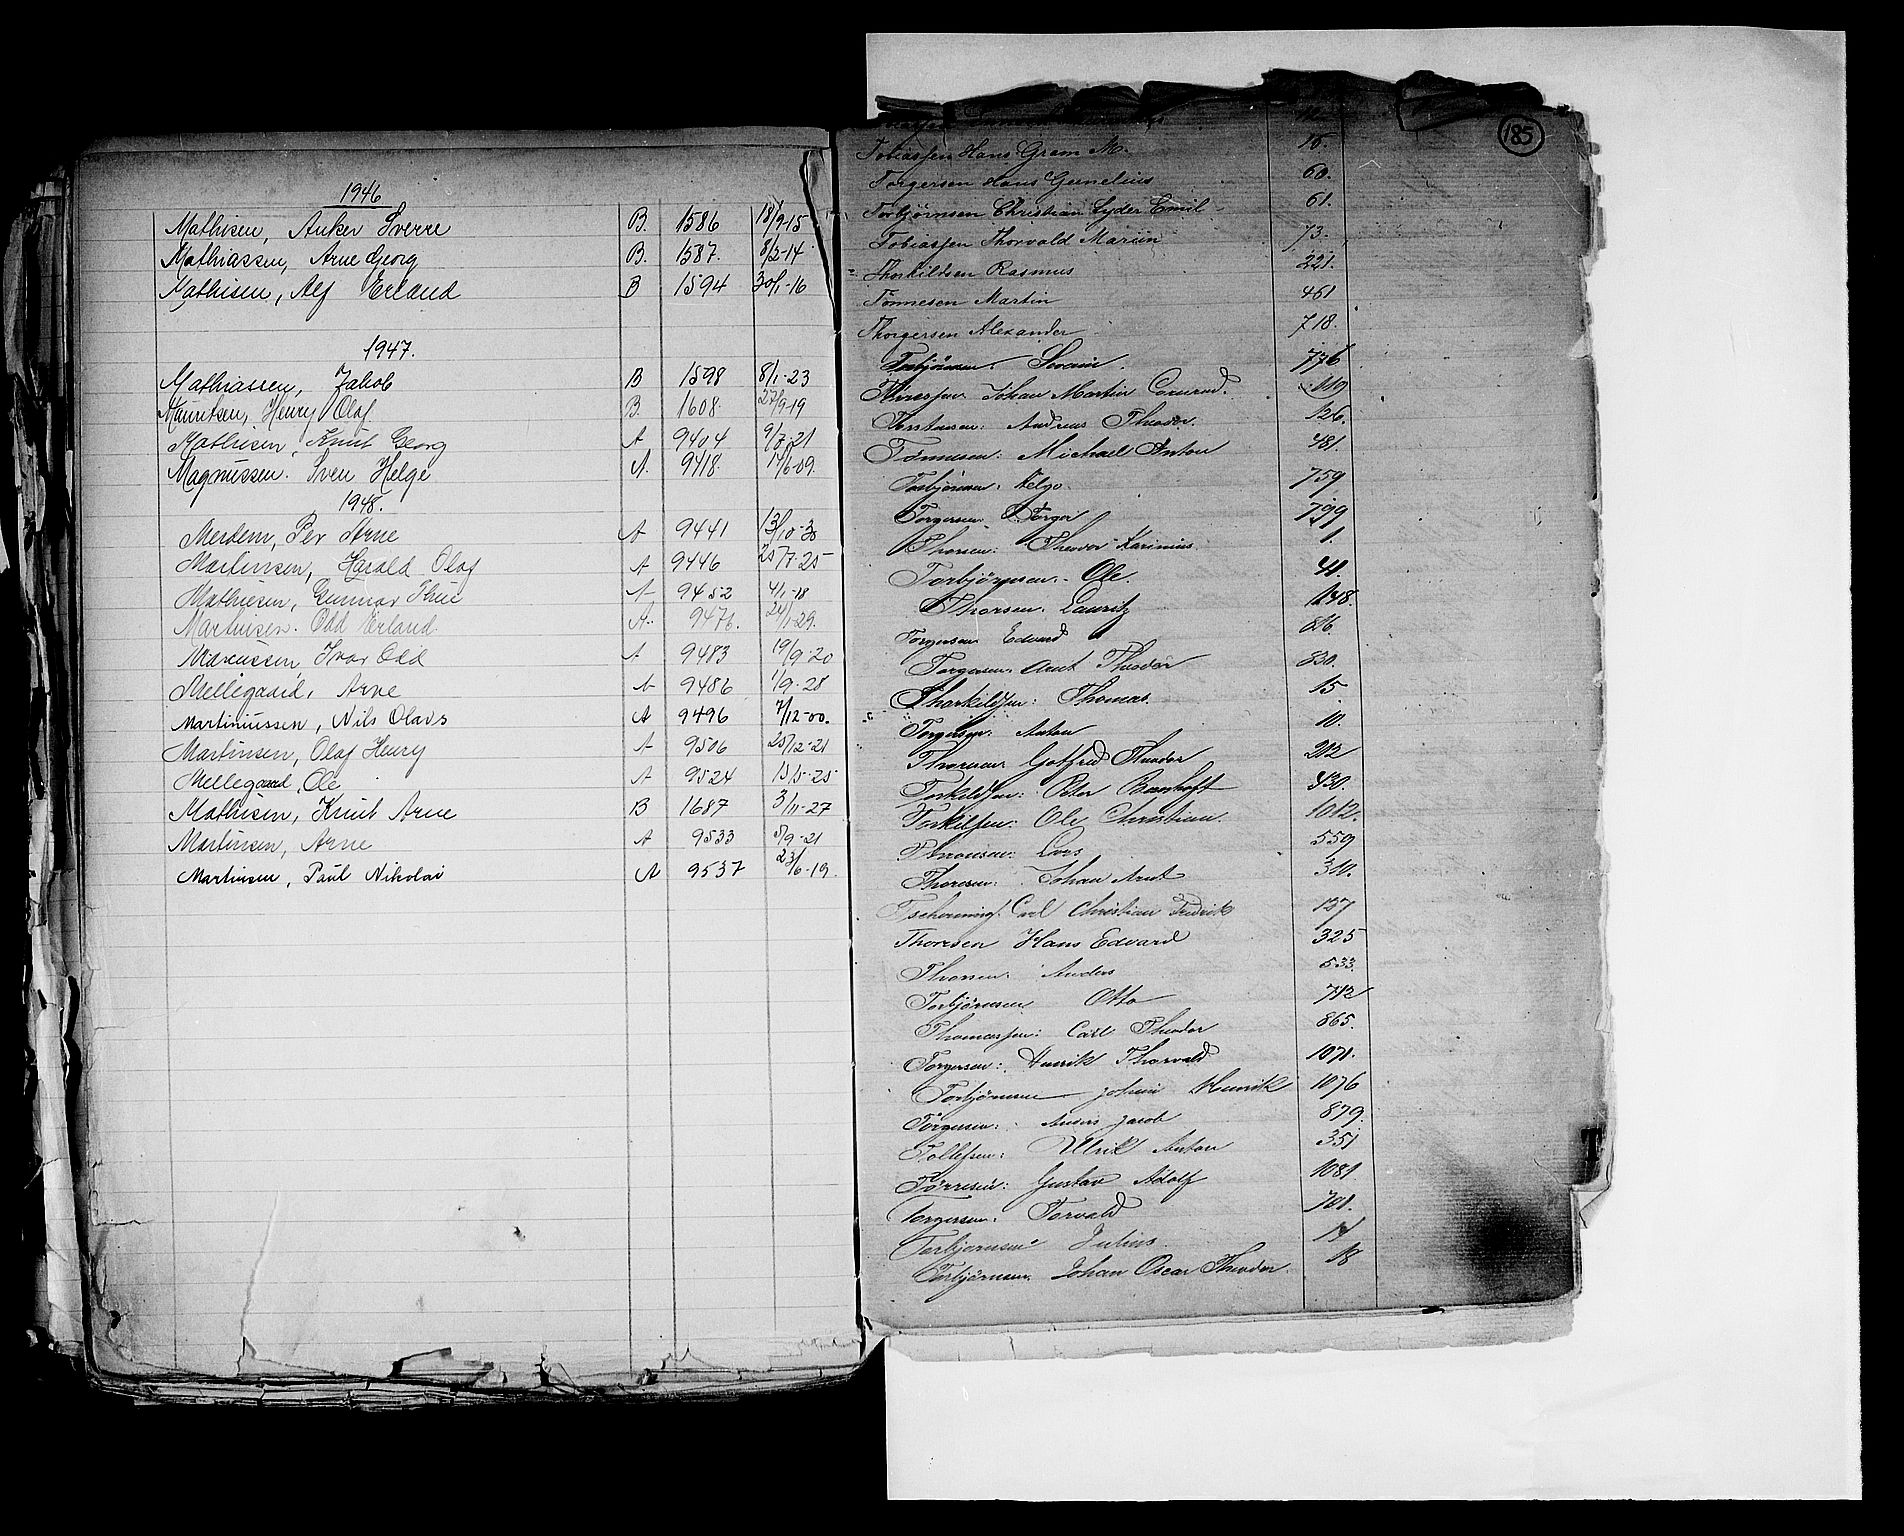 1946
Mathisen, Anker Sverre B. 1586 18/9-15
Mathiassen, Arne Georg B. 1587. 8/2-14
Mathisen, Alf Erland B 1594 30/1-16
1947.
Mathiassen, Jakob B 1598 8/1-23
Mauritsen, Henry Olaf B. 1608. 27/9-19
Mathisen, Knut Georg A 9404 9/7-21
Magnussen. Sven Helge A. 9418. 14/6-09.
1948.
Merdem, Per Arne A 9441 13/10-30
Martinsen, Harald Olaf A 9446 25/7-25
Mathiesen, Gunnar Thue A 9452 4/1-18
Martinsen. Odd Erland A. 9476. 24/1-29.
Marcussen, Ivar Odd A 9483 19/9-20
Mellegaard, Arne A 9486 1/9-28
Martiniussen, Nils Olavs A 9496 7/12-00.
Martinsen, Olaf Henry A 9506 25/12-21
Mellegaard, Ole A 9524 15/5-25
Mathisen, Knut Arne B 1687 3/11-27
Martinsen, Arne A 9533 5/9-21
Martinsen, Paul Nikolai A 9537 23/6-19.
185
Tobiassen Hans Gram M. 15.
Torgersen Hans Gernelius 60.
Torbjørnsen Christian Lyder Emil 61.
Tobiassen Thorvald Mariin 73.
Thorkildsen Rasmus 221.
Tønnesen Martin 461
Thorgersen Alexander 718.
Torbjörnsen. Svein. 776
Johan Martin Conrad. 119
Torstensen: Andreas Theodor. 126.
Tönnesen: Michael Anton 481.
Torbjörnsen. Helge. 759
Torgersen. Torger 799
Thorsen: Theodor Karinius 1
Torbjörnsen. Ole. 41.
Thorsen. Lauritz 148.
Torgersen Edvard
Torgersen. Arnt Theodor 830.
Thorkildsen: Thomas. 15
Torgersen: Anton 10.
Gotfred Theodor 212
Torkildsen: Peter 430.
Torkilsen: Ole Christian. 1012.
Lars 559
Thoresen: Johan Arnt 310.
Tscherning. Carl Christian Fredrik 137
Thoresen Hans Edvard 325
Thorsen: Anders 533.
Torbjörnsen Otto 742
Thomassen: Carl Theodor 865.
Torgersen: Henrik Thorvald 1071.
Torbjörnsen Johan Henrik 1076
Torgersen: Anders Jacob 879.
Tollefsen: Ulrik Anton 351
Törresen: Gustav Adolf 1081
Torgersen. Torvald 701.
Torbjörnsen Julius. 14
Torbjörnsen. Johan Oscar Theodor. 18